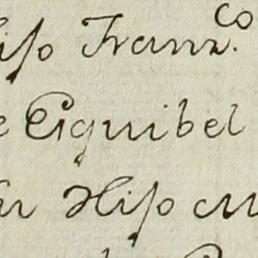 ijo Franz.co
Esquibel
Hijo